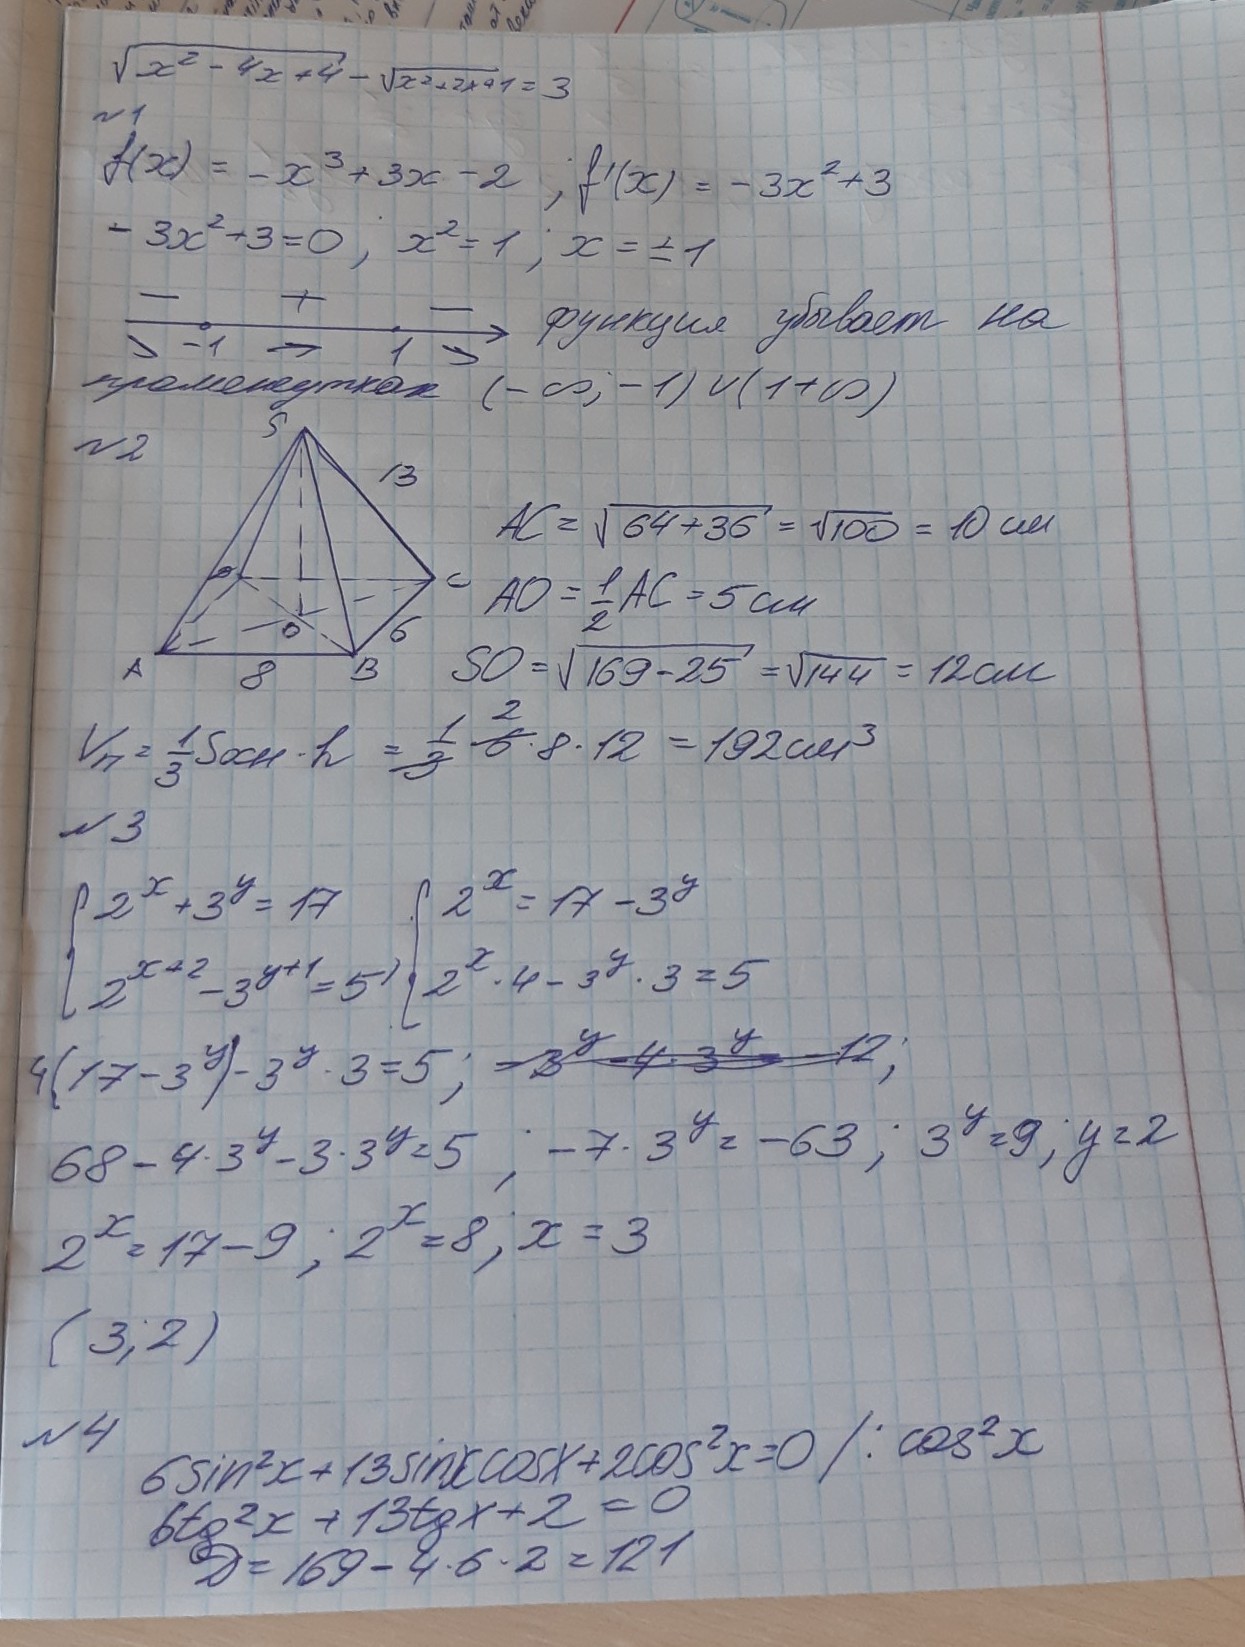 √(x² - 4x + 4) - √(x² + 2x + 1) = 3
№1
f(x) = -x³ + 3x - 2 ; f'(x) = -3x² + 3
- 3x² + 3 = 0 ; x² = 1 ; x = ±1
— + — функция убывает на
-1 1
промежутках (-∞; -1) ∪ (1 + ∞)
№2
S
13
AC = √(64+36) = √100 = 10 см
D C
AO = 1/2 AC = 5 см
O 6
A 8 B
SO = √(169-25) = √144 = 12 см
Vп = 1/3 Sосн · h = 1/3 6 2 · 8 · 12 = 192 см³
№3
{ 2^x + 3^y = 17 { 2^x = 17 - 3^y
2^(x+2) - 3^(y+1) = 5 ) 2^x · 4 - 3^y · 3 = 5
4(17 - 3^y) - 3^y · 3 = 5 ;
68 - 4 · 3^y - 3 · 3^y = 5 ; -7 · 3^y = -63 ; 3^y = 9 ; y = 2
2^x = 17 - 9 ; 2^x = 8 ; x = 3
(3; 2)
№4
6sin²x + 13sinxcosx + 2cos²x = 0 / : cos²x
6tg²x + 13tgx + 2 = 0
D = 169 - 4 · 6 · 2 = 121